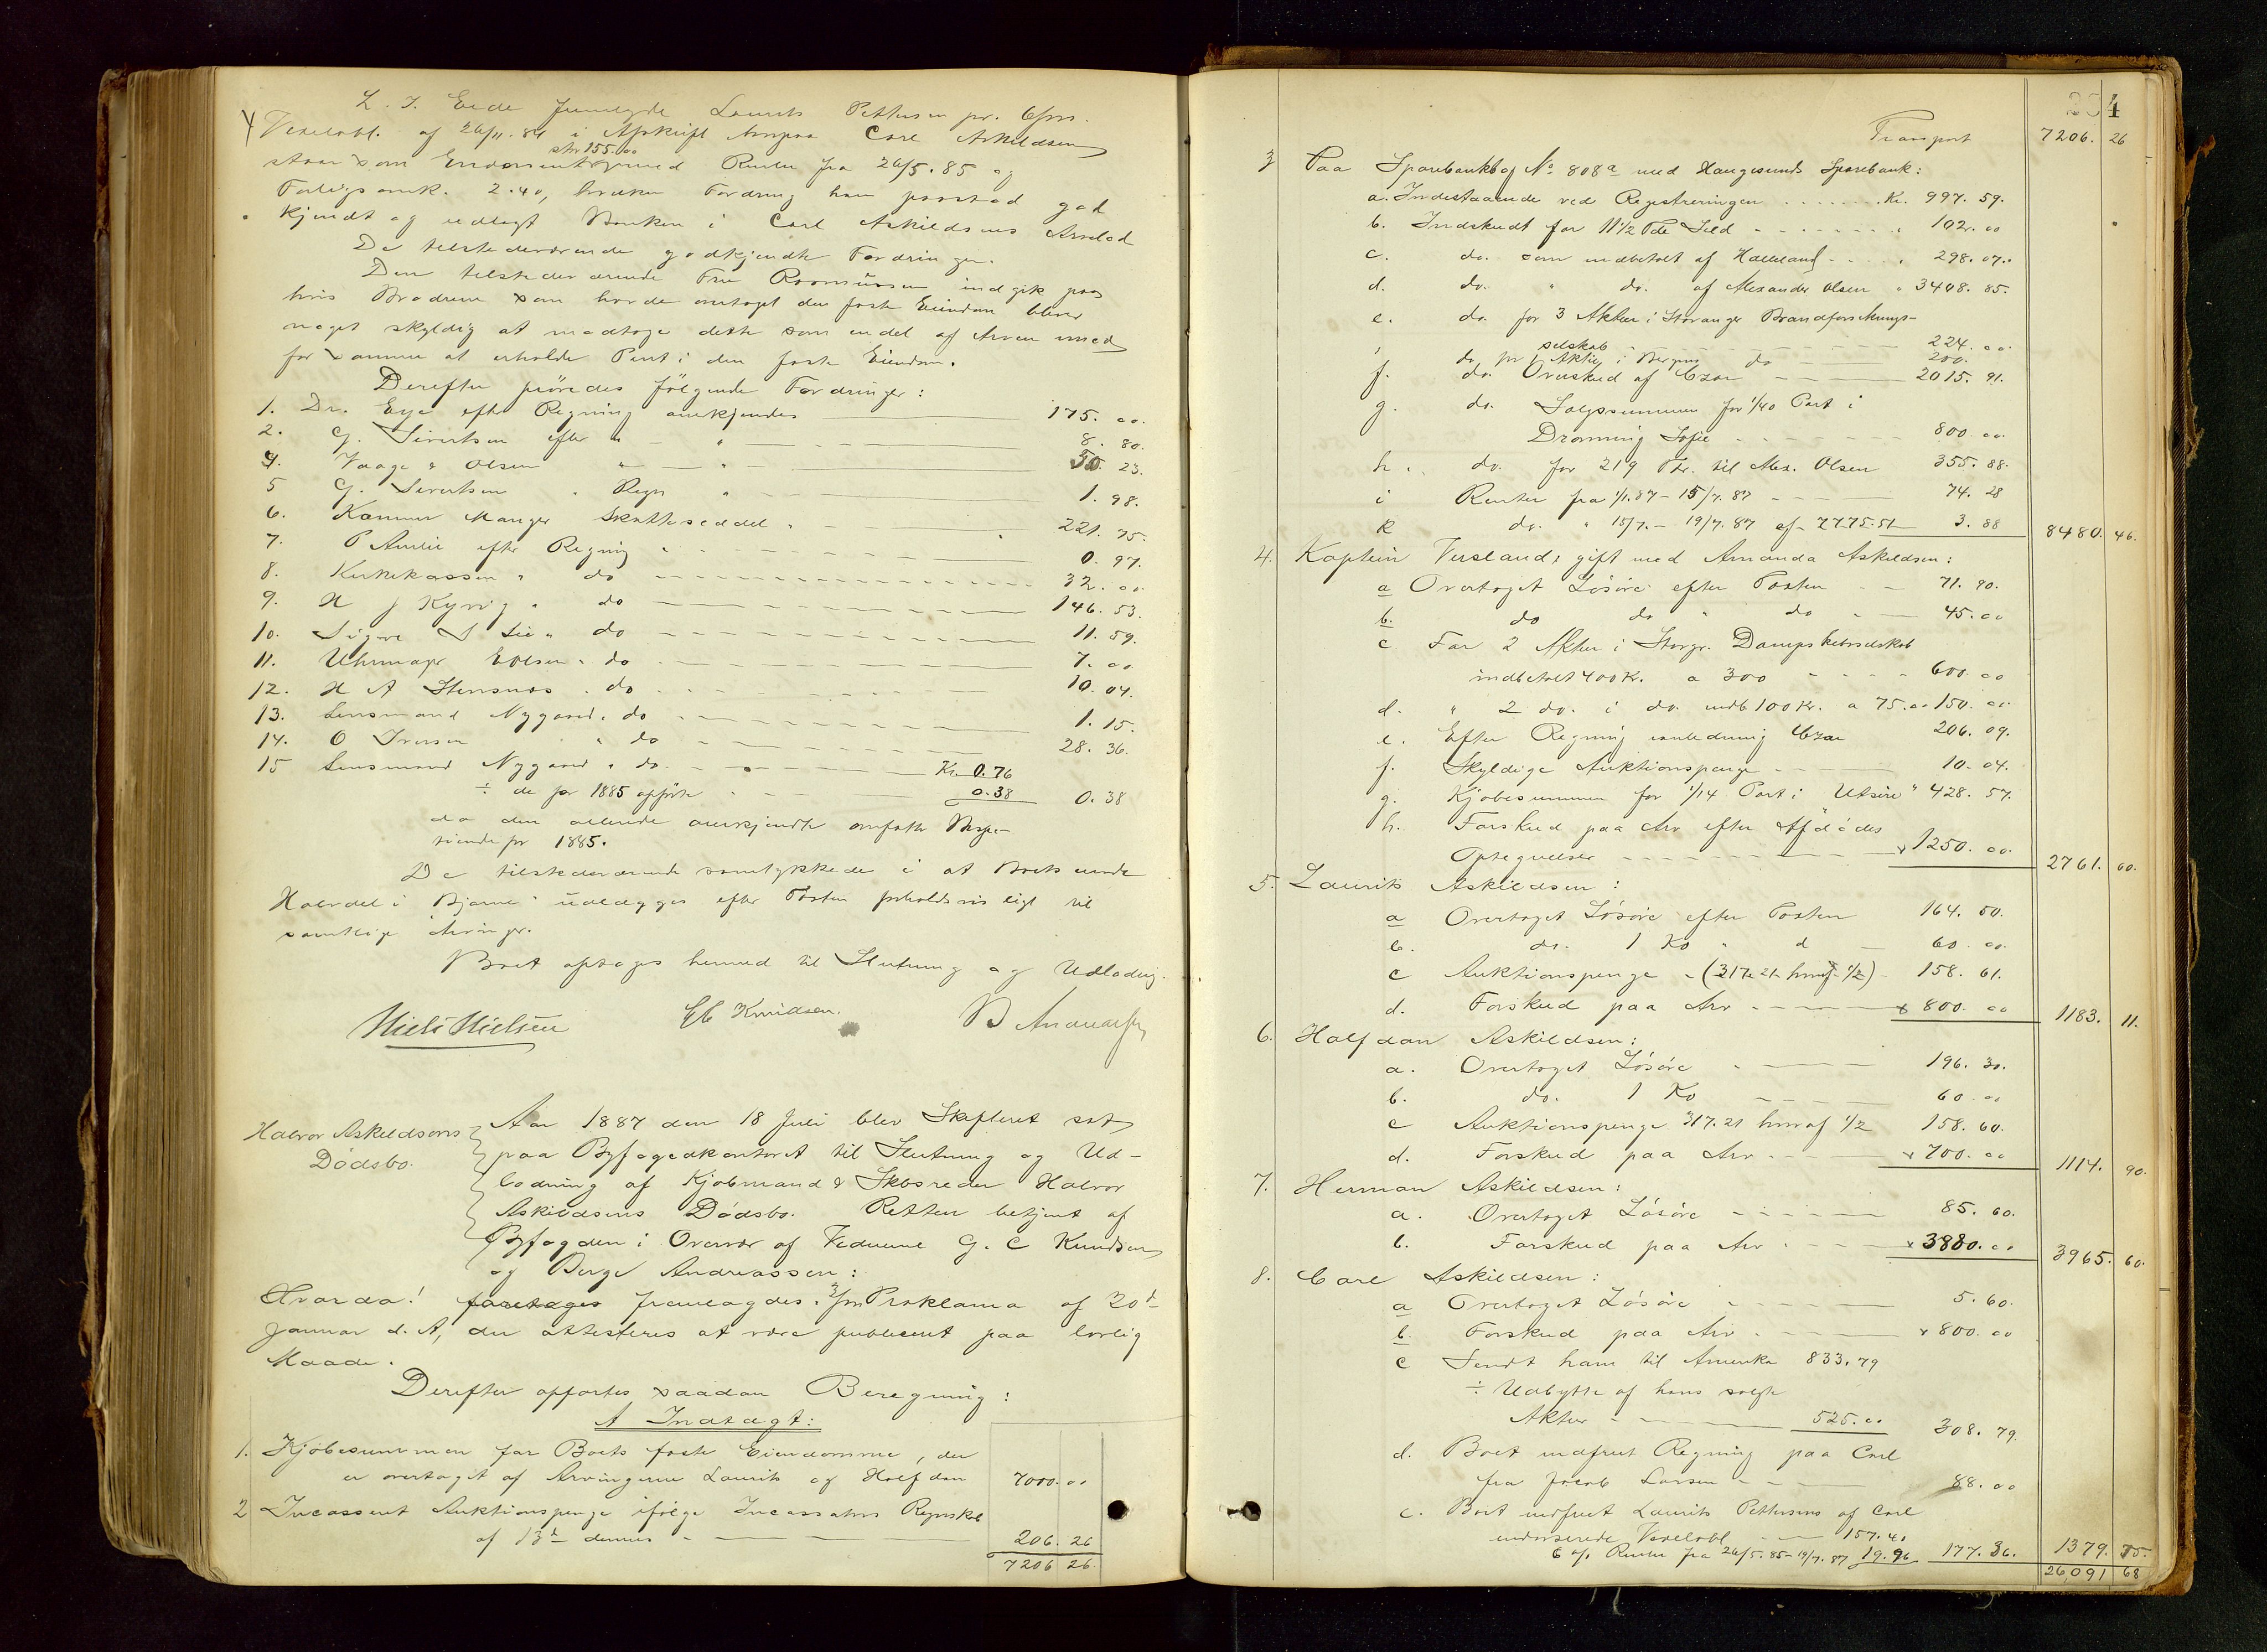 L. T. Eide fremlagde Laurits Pettersen pr. 6/m.
Vexelobl. af 26/11. 84 i Afskrift hvorpaa Carl Askildsen
stor 155.00
staar som Endossent med Renter fra 26/5. 85 og
Forligsomk. 2.40, hvilken Fordring han paastod god
kjendt og udlagt Banken i Carl Askildsens Arvelod
De tilstedeværende godkjendte Fordringen.
Den tilstedeværende Fru Rasmussen indgik paa
hvis Brødrene som havde overtaget den faste Eiendom bliver
noget skyldig at modtage dette som endel af Arven imod
for samme at erholde Pant i den faste Eiendom.
Derefter prövedes følgende Fordringer:
1. Dr. Eye efter Regning anerkjendes 175. 00.
2. G. Sivertsen efter " — " — 8. 80.
4. Vaage & Olsen " — " — 50. 23.
5 G. Sivertsen " Regn " — 1. 98.
6. Kæmner Manger Skatteseddel " — 221. 75.
7. P Amlie efter Regning " — 0. 97.
8. Kirkekassen " do — 32. 00.
9. H J Kyvig " do — 146. 53.
10. Sigva S Lie " do — 11. 59.
11. Uhrmager E Olsen " do — 7. 00
12. H A Stensnæs " do — 10. 04.
13. Lensmand Nygaard " do — 1. 15.
14. O Iversen " do — 28. 36.
15 Lensmand Nygaard " do — Kr. 0.76
÷ do for 1885 opförte — 0.38 0. 38
da den allerede anerkjendte omfatter
for 1885.
De tilstedeværende samtykkede i at Boets
Halvdel i "Bjarne" udlægges efter Taxten forholdsvisligt til
samtlige Arvinger.
Boet optages hermed til Slutning og Udlodng.
Niels Nielsen G C Knudsen. B Andreassen
Halvor Askildsens
Dødsbo.
Aar 1887 den 18 Juli blev Skifteret sat
paa Byfogedkontoret til Slutning og Ud-
lodning af Kjøbmand & Skbsreder Halvor
Askildsens Dødsbo. Retten betjent af
Byfogden i Overvær af Vidnerne G. C Knudsen
og Berge Andreassen:
Hvorda! foretages fremlagdes 3/m Proklama af 20d
Januar d. A, der attesteres at være publiceret paa lovlig
Maade.
Derefter opførtes saadan Beregning:
A Indtægt:
1. Kjøbesummen for Boets faste Eiendomme, der
er overtaget af Arvingerne Laurits og Halfdan 7000. 00
2 Incasseret Auktionspenge ifølge Incassators Regnskab
af 13d dennes — 206. 26
7206 26
254
Transport 7206. 26
3 Paa Sparebankbog No 808a med Haugesunds Sparebank:
a. Indestaaende ved Registreringen . . . Kr. 997. 59.
b. Indskudt for 11 1/2 Tde Sild — " 102. 00
c. do. som indbetalt af Hakeland — " 298. 07.
d. do. " do. af Alexander Olsen " 3408. 85.
e. do. for 3 Aktier i Stavanger Brandforsikrings-
selskab — 224. 00
do for 1 Aktie i Bergens do 200.
f. do. Overskud af Czar — 2015. 91.
g. do. Salgssummen for 1/40 Part i
Dronning Sofie — 800 00
h. do. for 219 Tdr. til Alex. Olsen 355. 88.
i Renter fra 1/1. 87 - 15/7. 87 — 74. 28
k do. " 15/7. - 19/7. 87 af 7775.51 3. 88 8480. 46.
4. Kaptein Versland, gift med Amanda Askildsen:
a Overtaget Løsøre efter Taxten — 71. 90.
b. do do " do — 45. 00
c For 2 Aktier i Stavgr. Dampskibsselskab
indbetalt 400 Kr. a 300 — 600. 00
d. " 2 do. i do. indb 100 Kr. a 75.00 150. 00
e. Efter Regning anledning Czar 206. 09.
f. Skyldige Auktionspenge — 10. 04.
g. Kjøbesummen for 1/14 Part i "Utsire" 428. 57.
h. Forskud paa Arv efter Afdødes
Optegnelser — 1250. 00. 2761. 60.
5. Laurits Askildsen:
a Overtaget Løsøre efter Taxten 164. 50.
b. do. 1 Ko " d — 60. 00.
c Auktionspenge (317.21 hvoraf 1/2) 158. 61.
d. Forskud paa Arv — 800. 00 1183. 11.
6. Halfdan Askildsen:
a. Overtaget Løsøre — 196. 30.
b. do. 1 Ko — 60. 00
c Auktionspenge 317.21 hvoraf 1/2 158. 60.
d. Forskud paa Arv — 700. 00 1114. 90.
7. Herman Askildsen:
a. Overtaget Løsøre — 85. 60.
b. Forskud paa Arv — 3880. 00 3965. 60.
8. Carl Askildsen:
a Overtaget Løsøre — 5. 60.
b. Forskud paa Arv — 800. 00
c Sendt ham til Amerika 833. 79
÷ Udbytte af hans solgte
Aktier — 525. 00 308. 79.
d. Boet indfriet Regning paa Carl
fra Jacob Larsen — 88. 00
e. Boet indfriet Laurits Pettersens af Carl
endosserede Vexelobl. — 157. 40
6 % Renter fra 26/5. 85 - 19/7. 87 19. 96 177. 36. 1379. 75.
26,091 68